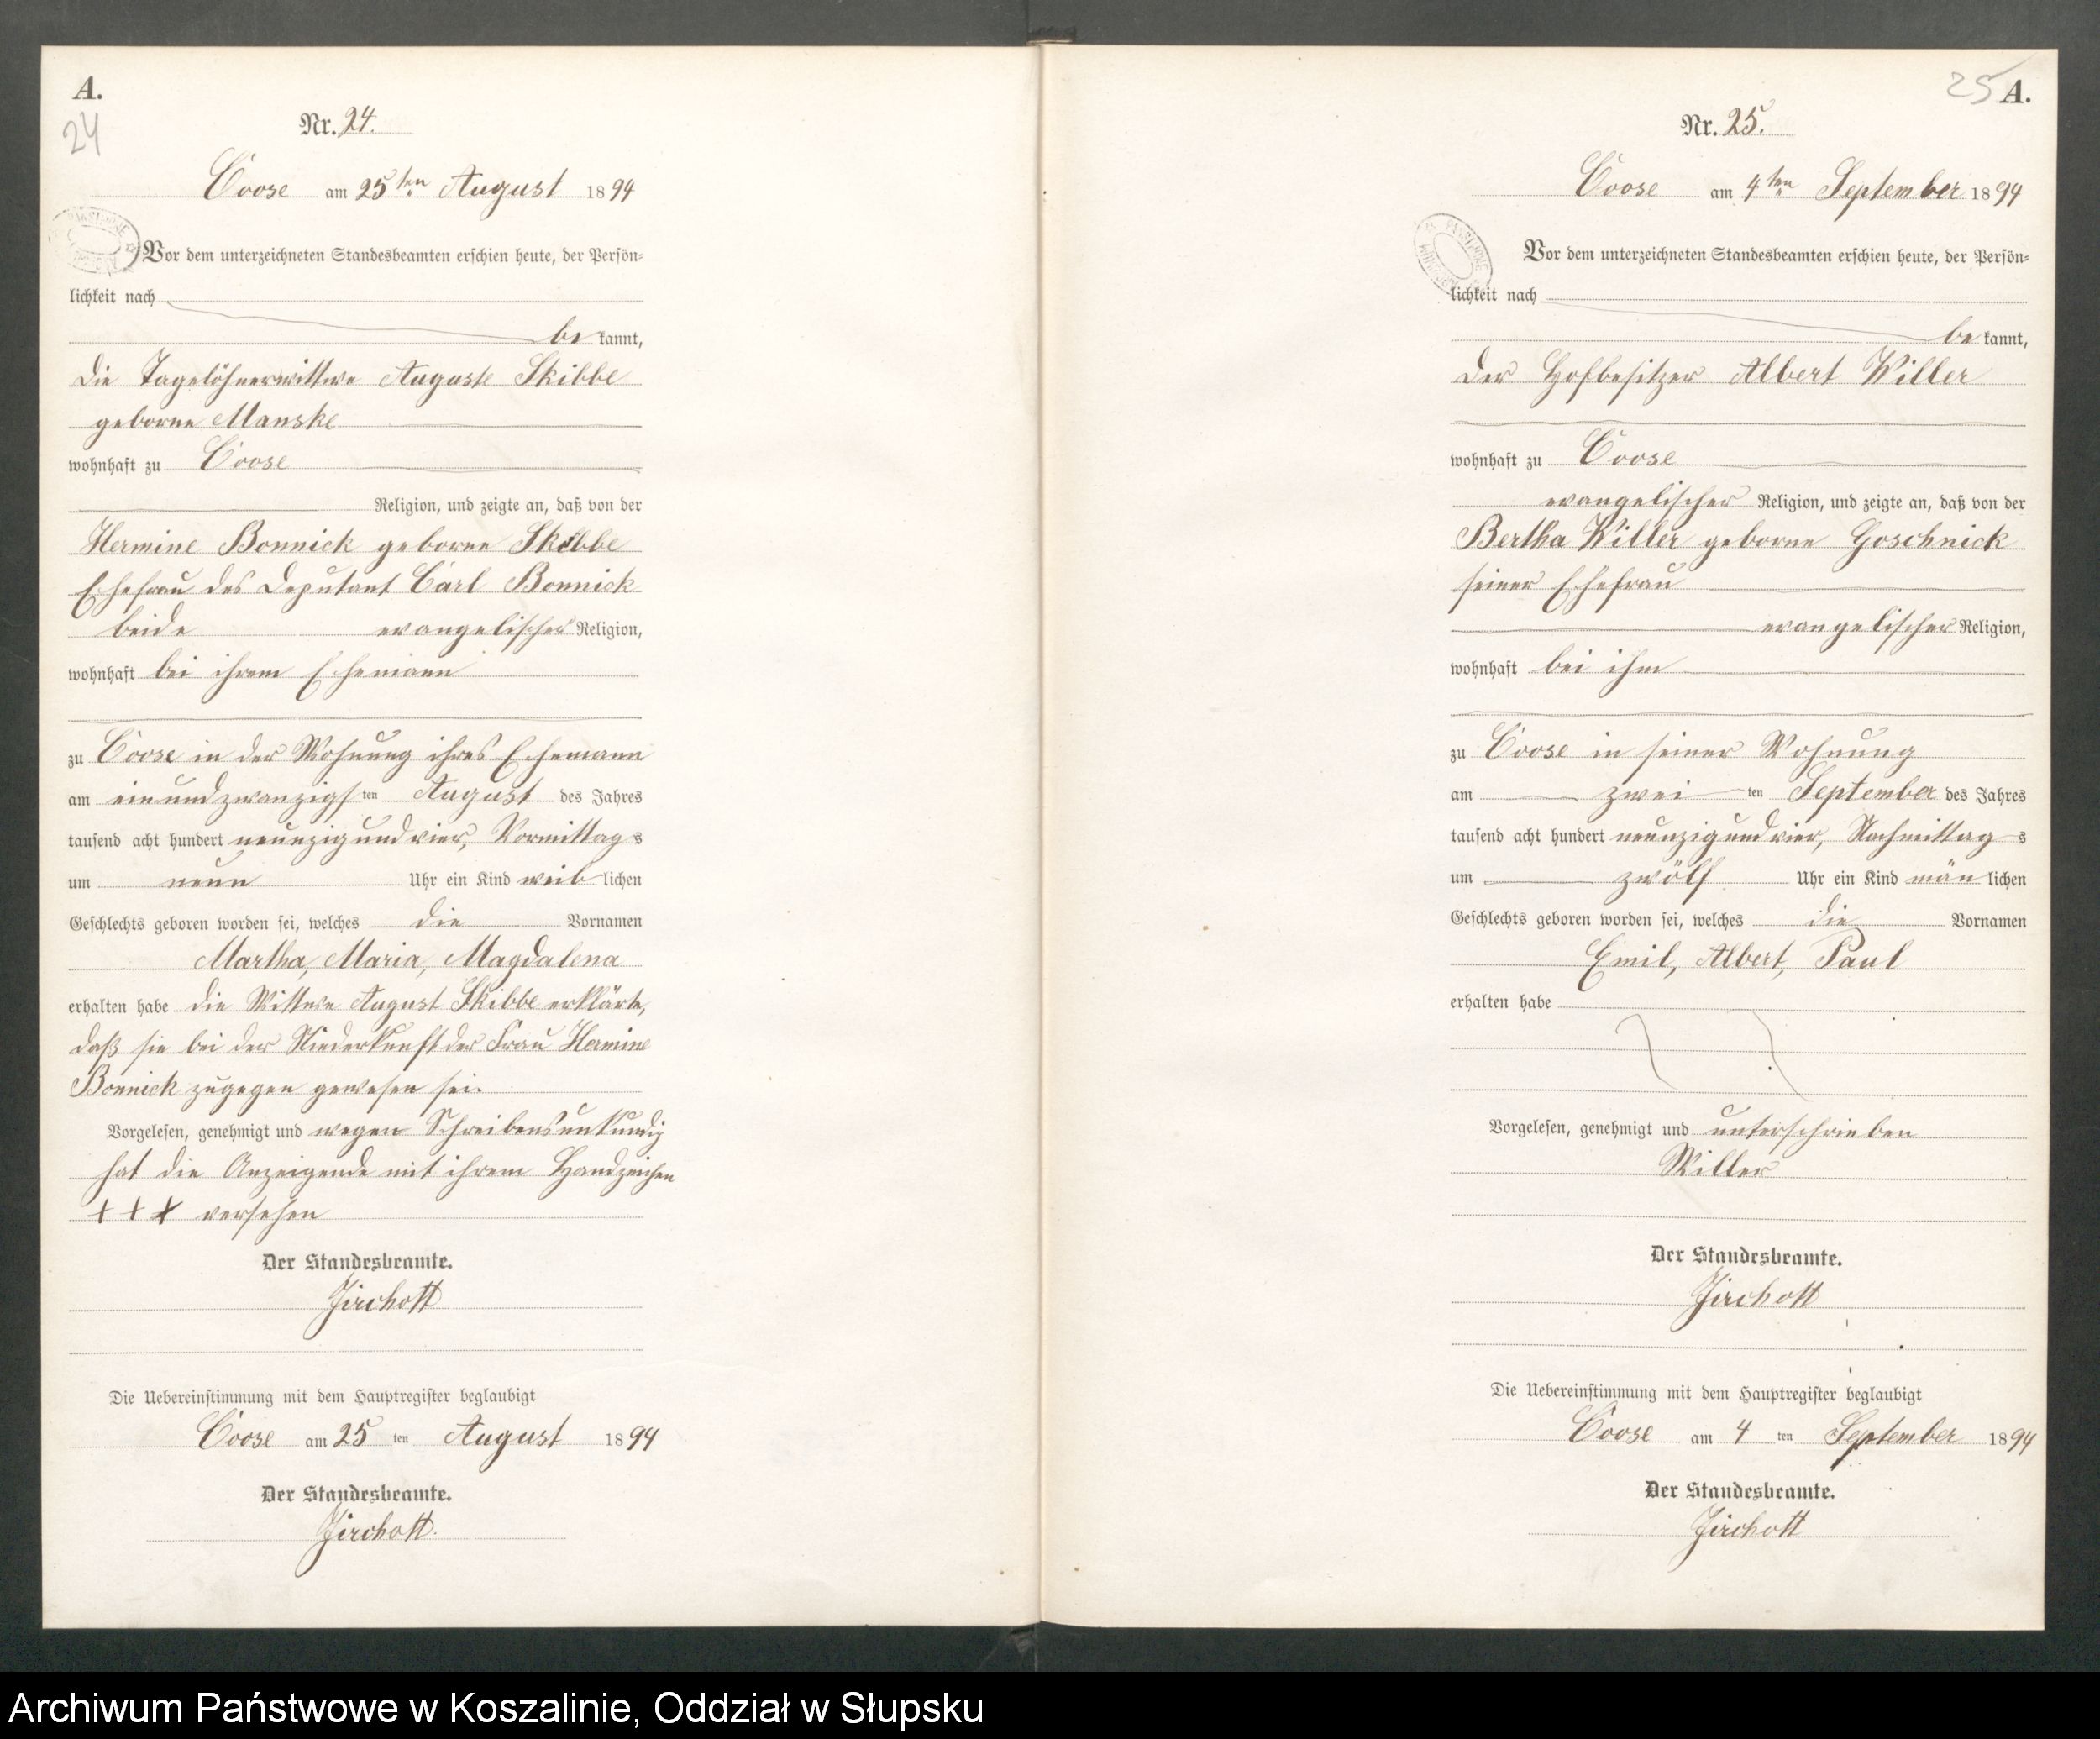 A.
24
Nr. 24.
Coose am 25ten August 1894
Vor dem unterzeichneten Standesbeamten erschien heute, der Persön-
lichkeit nach
be kannt,
die Tagelöhnerwittwe Auguste Skibbe
geborne Manske
wohnhaft zu Coose
Religion, und zeigte an, daß von der
Hermine Bonnick geborne Skibbe
Ehefrau des Deputant Carl Bonnick
beide evangelischer Religion,
wohnhaft bei ihrem Ehemann
zu Coose in der Wohnung ihres Ehemann
am einundzwanzigsten August des Jahres
tausend acht hundert neunzigundvier, Vormittags
um neun Uhr ein Kind weiblichen
Geschlechts geboren worden sei, welches die Vornamen
Martha, Maria, Magdalena
erhalten habe die Wittwe August Skibbe erklärte,
daß sie bei der Niederkunft der Frau Hermine
Bonnick zugegen gewesen sei.
Vorgelesen, genehmigt und wegen Schreibensunkundig
hat die Anzeigende mit ihrem Handzeichen
+ + + versehen
Der Standesbeamte.
Zirchott
Die Uebereinstimmung mit dem Hauptregister beglaubigt
Coose am 25 ten August 1894
Der Standesbeamte.
Zirchott.
25 A.
Nr. 25.
Coose am 4ten September 1894
Vor dem unterzeichneten Standesbeamten erschien heute, der Persön-
lichkeit nach
be kannt,
der Hofbesitzer Albert Willer
wohnhaft zu Coose
evangelischer Religion, und zeigte an, daß von der
Bertha Willer geborne Goschnick
seiner Ehefrau
evangelischer Religion,
wohnhaft bei ihm
zu Coose in seiner Wohnung
am zwei ten September des Jahres
tausend acht hundert neunzigundvier, Nachmittags
um zwölf Uhr ein Kind mänlichen
Geschlechts geboren worden sei, welches die Vornamen
Emil, Albert, Paul
erhalten habe
Vorgelesen, genehmigt und unterschrieben
Willer
Der Standesbeamte.
Zirchott
Die Uebereinstimmung mit dem Hauptregister beglaubigt
Coose am 4 ten September 1894
Der Standesbeamte.
Zirchott
Archiwum Państwowe w Koszalinie, Oddział w Słupsku